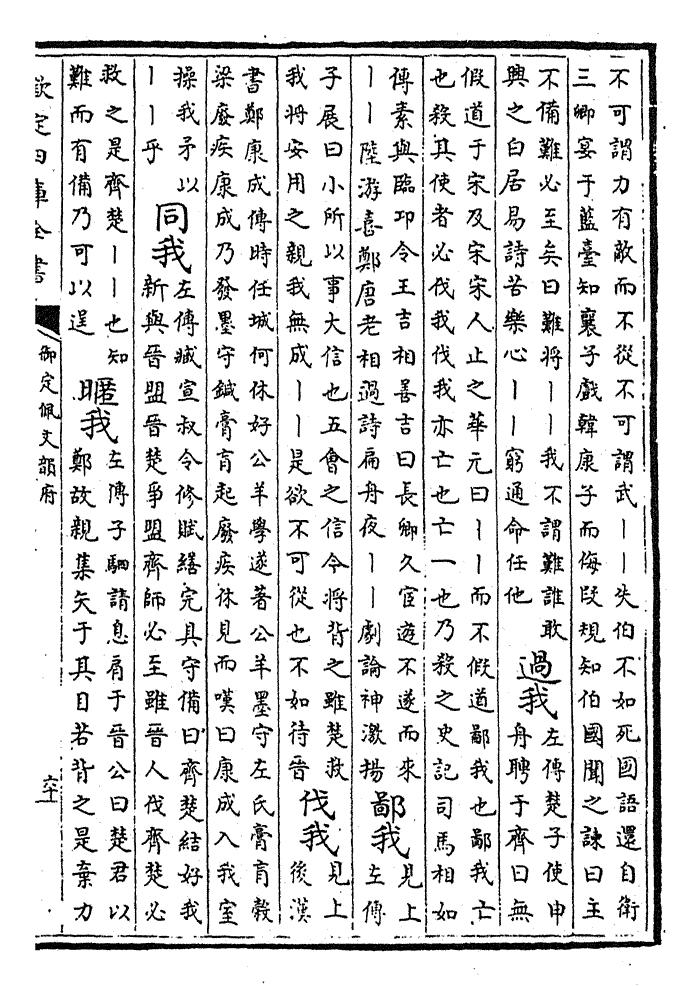 不可謂力有敵而不從不可謂武丨丨失伯不如死國語還自衛
三卿宴于藍臺知襄子戲韓康子而侮段規知伯國聞之諫曰主
不備難必至矣曰難將丨丨我不謂難誰敢
興之白居易詩苦樂心丨丨窮通命任他
過我
左傳楚子使申
舟聘于齊曰無
假道于宋及宋宋人止之華元曰丨丨而不假道鄙我也鄙我亡
也殺其使者必伐我伐我亦亡也亡一也乃殺之史記司馬相如
傳素與臨卭令王吉相善吉曰長卿久宦遊不遂而來
丨丨陸游喜鄭唐老相過詩扁舟夜丨丨劇論神激揚
鄙我
見上
左傳
子展曰小所以事大信也五會之信今將背之雖楚救
我將安用之親我無成丨丨是欲不可從也不如待晉
伐我
見上
後漢
書鄭康成傳時任城何休好公羊學遂著公羊墨守左氏膏肓榖
梁廢疾康成乃發墨守鍼膏肓起廢疾休見而嘆曰康成入我室
操我矛以
丨丨乎
同我
左傳臧宣叔令修賦繕完具守備曰齊楚結好我
新與晉盟晉楚爭盟齊師必至雖晉人伐齊楚必
救之是齊楚丨丨也知
難而有備乃可以逞
暱我
左傳子駟請息肩于晉公曰楚君以
鄭故親集矢于其目若背之是棄力
欽定四庫全書
御定佩文韻府
六十